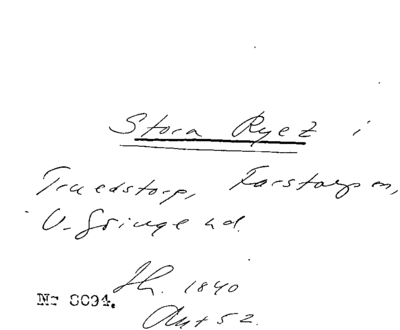 Stora Ryet i
Truedstorp, Farstorp sn,
V. Göinge hd.
1840
Ant 52.
Nr 8094.